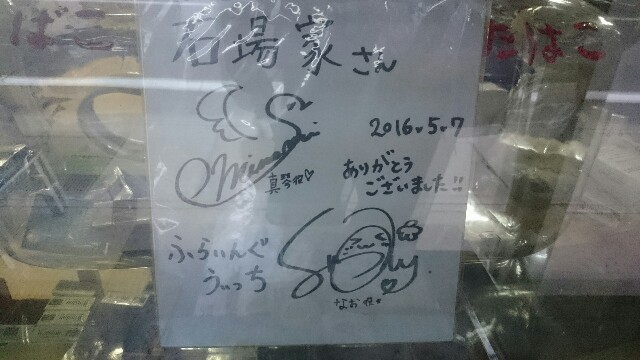 ばこ
たばこ
石場家さん
2016.5.7
真琴役♡
ありがとう
ございました!!
ふらいんぐ
うぃっち
なお役♥